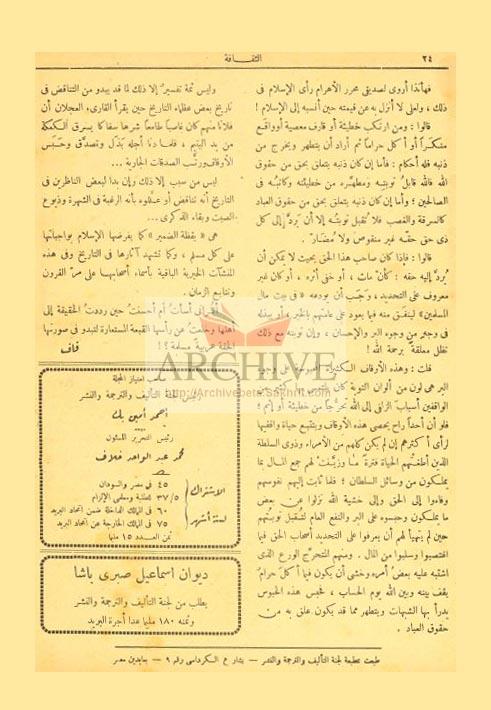 ٢٤
الثقافة
فهأنذا أروى لصديق محرر الأهرام رأى الإسلام فى
ذلك ، ولعلى لا أنزل به عن قيمته حين أنسبه إلى الإسلام !
قالوا : ومن ارتكب خطيئة أو قارف معصية أو واقع
منكراً أو أكل حراماً ثم أراد أن يتطهر ويخرج من
ذنبه فله أحكام : فأما إن كان ذنبه يتعلق بحق من حقوق
الله فالله قابلُ توبتِه ومطهِّره من خطيئته وكاتبُه فى
الصالحين ؛ وأما إن كان ذنبه يتعلق بحق من حقوق العباد
كالسرقة والغصب فلا تُقبل توبته إلا أن يَردَّ إلى كل
ذى حق حقَّه غير منقوص ولا مُضارّ .
قالوا : فإذا كان صاحب هذا الحق بحيث لا يمكن أن
يُردَّ إليه حقه : كأن مات ، أو خفى أثره ، أو كان غير
معروف على التحديد ، وَجَبَ أن يودعه « فى بيت مال
المسلمين » لينفق منه فيما يعود على عامتهم بالخير ، أو يبذله
فى وجهٍ من وجوه البر والإحسان ، وإن توبته مع ذلك
تظل معلقةً برحمة الله !
قلت : وهذه الأوقاف الكثيرة المحبوسة على وجوه
البر هى لون من ألوان التوبة كان يلتمس بها كثير من
الواقفين أسبابَ الزلفى إلى الله تحرُّجاً من خطيئة أو إثم ؛
فلو أن أحداً راح يحصى هذه الأوقاف ويتتبع حياة واقفيها
لرأى أكثرهم إن لم يكن كلهم من الأمراء وذوى السلطة
الذين أطغتهم الحياة فترةً ما وزيَّنت لهم جمع المال بما
يملكون من وسائل السلطان ؛ فلما ثابت إليهم نفوسهم
وفاءوا إلى الحق وإلى خشية الله نزلوا عن بعض
ما يملكون وحبسوه على البر والنفع العام لتُقبل توبتُهم
حين لم يتهيأ لهم أن يعرفوا على التحديد أصحاب الحق فيما
اغتصبوا وسلبوا من المال . ومنهم المتحرِّج الورع الذى
اشتبه عليه بعضُ أمره وخشى أن يكون فيما أكل حرامٌ
يقف بينه وبين الله يوم الحساب ، فحبس هذه الحبوس
يدرأ بها الشبهات ويتطهر مما قد يكون علق به من
حقوق العباد .
وليس ثمة تفسيرٌ إلا ذلك لما قد يبدو من التناقض فى
تاريخ بعض عظماء التاريخ حين يقرأ القارىء العجلان أن
فلاناً منهم كان غاصباً طامعاً شرهاً سفاكاً يسرق الكعكة
من يد اليتيم ، فلما دنا أجله بَذَل وتصدَّق وحَبَس
الأوقاف ورتَّب الصدقات الجارية ...
ليس من سبب إلا ذلك وإن بدا لبعض الناظرين فى
التاريخ أنه تناقض أو عللوه بأنه الرغبة فى الشهرة وذيوع
الصيت وبقاء الذكرى ...
هى « يقظة الضمير » كما يفرضها الإسلام بواجباتها
على كل مسلم ، وكما تشهد آثارها فى التاريخ وفى هذه
المنشآت الخيرية الباقية بأسماء أصحابها على مرّ القرون
وتتابع الزمان .
أترانى أسأتُ أم أحسنتُ حين رددتُ الحقيقة إلى
أهلها وخلعتُ عن رأسها القبعة المستعارة لتبدو فى صورتها
الحقة عربية مسلمة ؟ !
قاف
صاحب امتياز المجلة
لجنة التأليف والترجمة والنشر
أحمد أمين بك
رئيس التحرير المسئول
محمد عبد الواحد خلاف
الاشتراك لستة أشهر
٤٥ فى مصر والسودان
٣٧/٥ للطلبة ومعلمى الإلزام
٦٠ فى الممالك الداخلة ضمن اتحاد البريد
٧٥ فى الممالك الخارجة عن اتحاد البريد
ثمن العدد ١٥ مليما
ديوان اسماعيل صبرى باشا
يطلب من لجنة التأليف والترجمة والنشر
وثمنه ١٨٠ مليما عدا أجرة البريد
طبعت بمطبعة لجنة التأليف والترجمة والنشر — بشارع الكرداسى رقم ٩ — بعابدين مصر
ARCHIVE
http://Archivebeta.Sakhrit.com